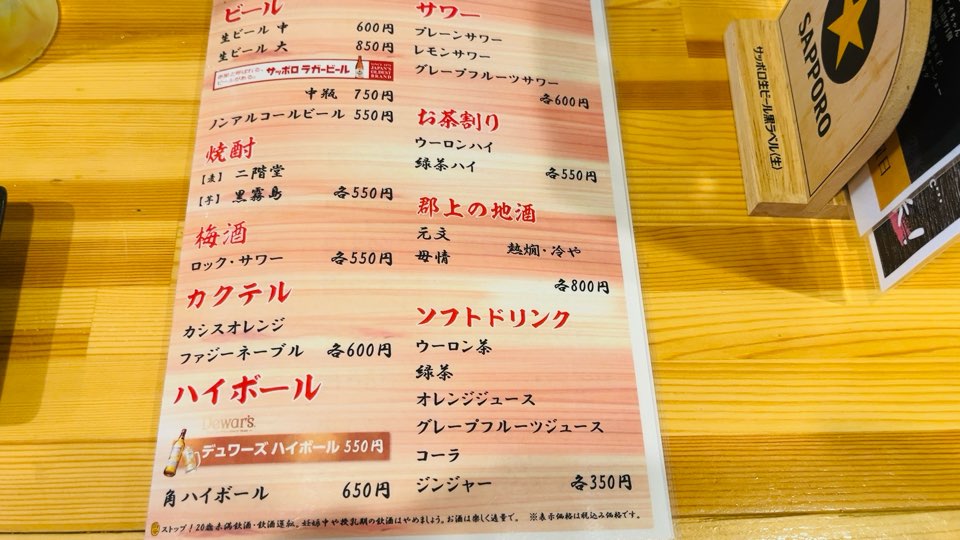 ビール
生ビール 中 600円
生ビール 大 850円
サッポロ ラガービール
SINCE 1876
JAPAN'S
OLDEST
BRAND
中瓶 750円
ノンアルコールビール 550円
焼酎
【麦】 二階堂
【芋】 黒霧島 各550円
梅酒
ロック・サワー 各550円
カクテル
カシスオレンジ
ファジーネーブル 各600円
ハイボール
Dewar's
デュワーズ ハイボール 550円
角ハイボール 650円
サワー
プレーンサワー
レモンサワー
グレープフルーツサワー
各600円
お茶割り
ウーロンハイ
緑茶ハイ
各550円
郡上の地酒
元文
母情 熱燗・冷や
各800円
ソフトドリンク
ウーロン茶
緑茶
オレンジジュース
グレープフルーツジュース
コーラ
ジンジャー 各350円
ストップ!20歳未満飲酒・飲酒運転。妊娠中や授乳期の飲酒はやめましょう。お酒は楽しく適量で。 ※表示価格は税込み価格です。
SAPPORO
サッポロ生ビール黒ラベル〈生〉